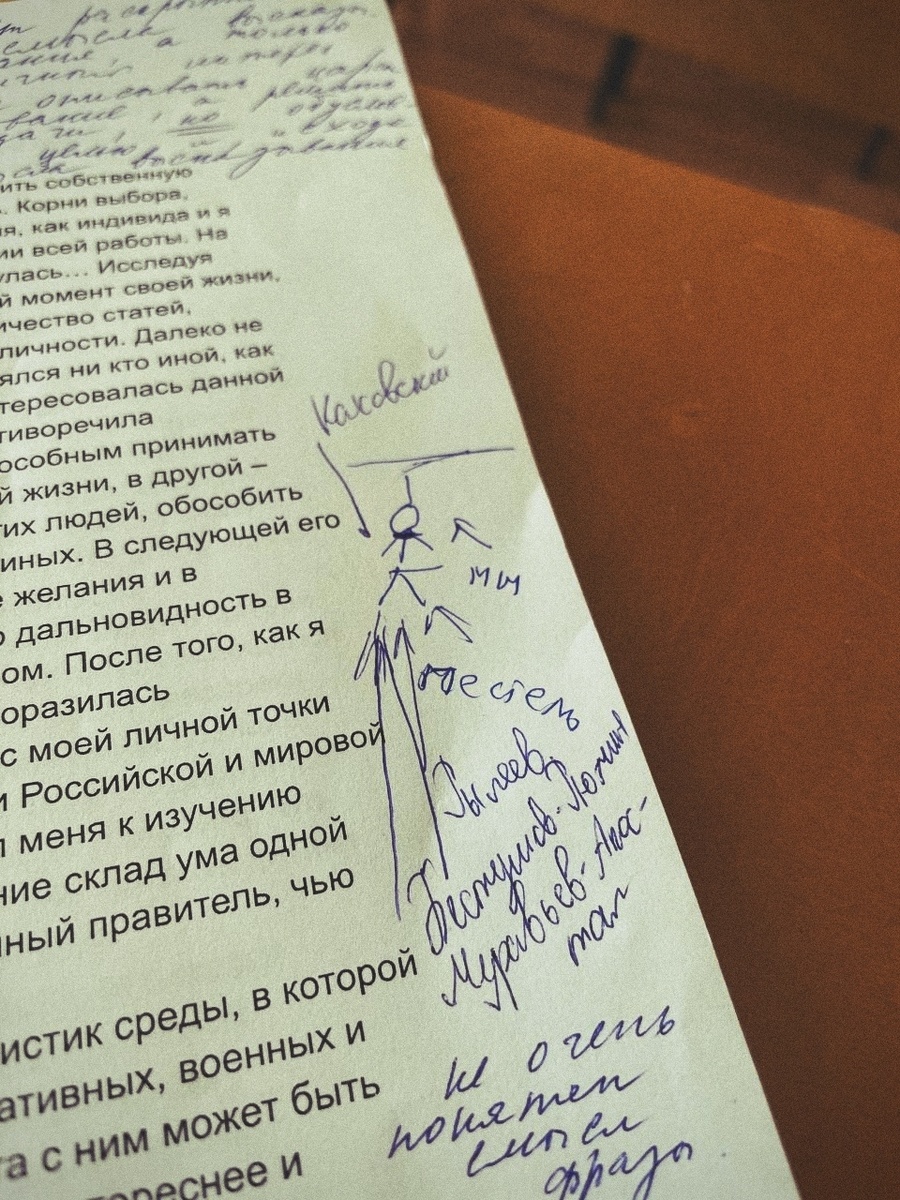 а только
описывать
не
собственную
. Корни выбора,
ия, как индивида и я
ии всей работы. На
улась... Исследуя
й момент своей жизни,
ичество статей,
личности. Далеко не
ялся ни кто иной, как
тересовалась данной
тиворечила
особным принимать
й жизни, в другой –
гих людей, обособить
иных. В следующей его
е желания и в
о дальновидность в
ом. После того, как я
оразилась
с моей личной точки
и Российской и мировой
л меня к изучению
ние склад ума одной
нный правитель, чью
истик среды, в которой
ативных, военных и
та с ним может быть
тереснее и
Каховский
Пестель
Рылеев
Бестужев-Рюмин
Муравьев-Апос-
тол
не очень
понятен
смысл
фразы.